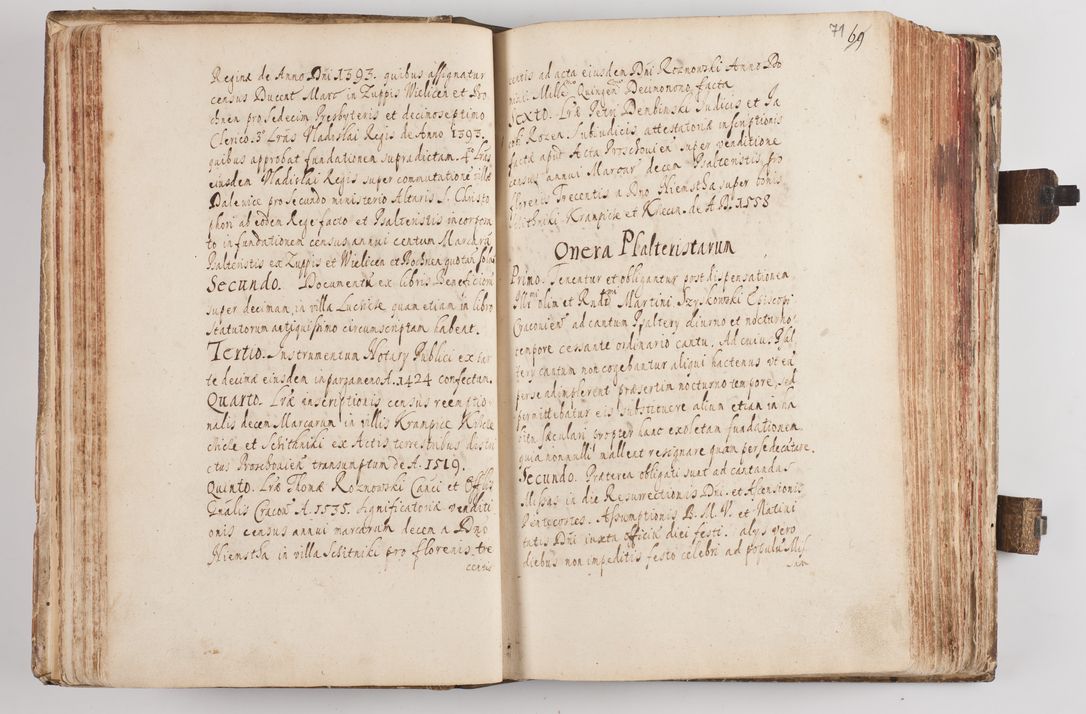 Reginæ de Anno Dni 1393. quibus assignatur
census Ducent Marc in Zuppis Wielicen et Bo
chnen pro sedecim Presbyteris et decimoseptimo
Clerico. 3º Lras Vladislai Regis de Anno 1393.
quibus approbat fundationem supradictam. 4º Lras
eiusdem Vladislai Regis super commutatione villæ
Dalevice pro secundo ministerio Altaris S. Christo
phori ab eodem Rege facto et Psalteristis incorpora
to in fundationem census annui centum Marcarū
Psalteristis ex Zuppis et Wielicen et Bochnen quotan
Secundo. Documentū ex libris Beneficiorū
super decimam in villa quam etiam in libro
statutorum antiquissimo circumscriptam habent.
Tertio. Instrumentum Notary Publici ex par
te decimæ eiusdem in pargameno A. 1424 confectum.
Quarto. Lræ inscriptionis census reemptio
nalis decem Marcarum in villis Krampice
et Schitniki ex Actis terrestribus distri
ctus Proschovien transumptum de A. 1519.
Quinto. Lræ Thomæ Roznowski Canci et Offlis
Gnalis Cracov A. 1535. significatoriæ venditi
onis census annui marcarum decem a Dno
Hiemstha in villa Schitniki pro florenis tre
centis
71 69
centis ad acta eiusdem Dni Roznowski Anno Do
mini Millmo Quingen Decimonono facta
Sexto. Lræ Petri Dembinski Iudicis et Ia
cob Rozen. Subiudicis attestatoriæ inscriptionis
factæ apud Acta Proschovien super venditione
census annui Marcar decem Psalteristis pro
florenis Trecentis a Dno Hiemstha super bonis
Schithniki Krampice et de A. D. 1558
Onera Psalteristarum
Primo. Tenentur et obligantur post dispensationem
Illmi olim et Rndmi Martini Szyskowski Episcopi
Cracovien ad cantum Psaltery diurno et nocturno
tempore cessante ordinario cantu. Ad cuius Psal
tery cantum non cogebantur aliqui hactenus vt eū
per se adimplerent præsertim nocturno tempore, sed
permittebatur eis substituere alium etiam in ha
bitu sæculari propter hanc exoletam fundationem
quia nonnulli mallent resignare quam per se decātare.
Secundo. Præterea obligati sunt ad cantandas
Missas in die Resurrectionis Dni. et Ascensionis
Pentecostes. Assumptionis B. M. V. et Natiui
tatis Dni iuxta officiū diei festi. alys vero
diebus non impeditis festo celebri ad populū Mis
sam